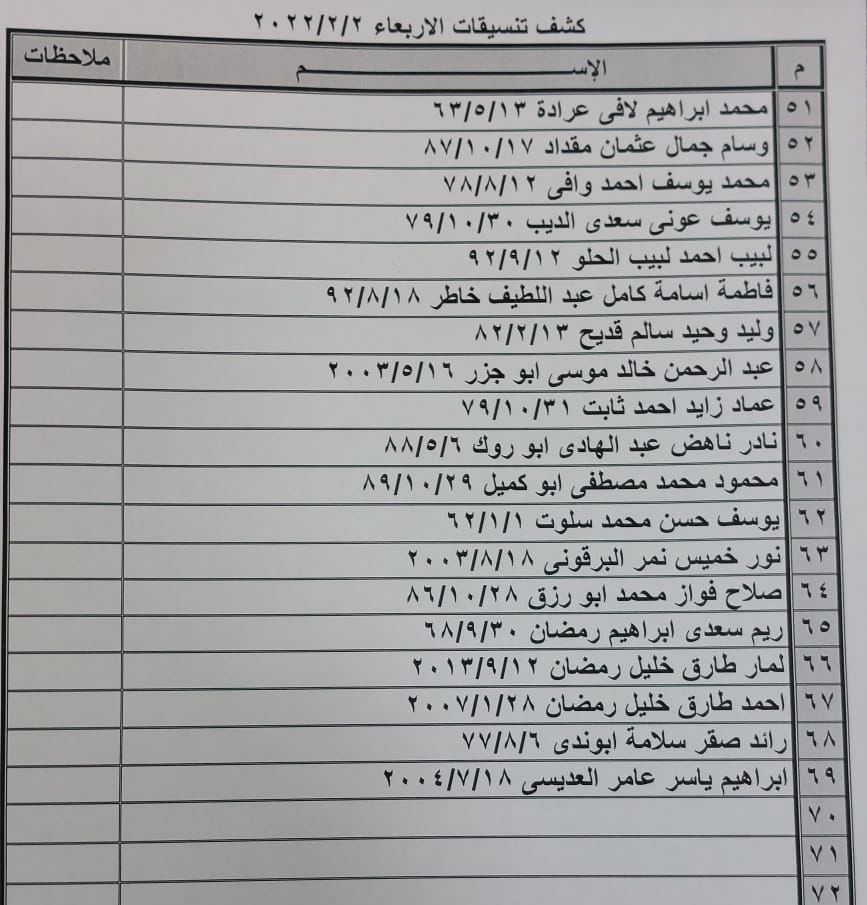 كشف تنسيقات الاربعاء ٢٠٢٢/٢/٢
م الإســـــم ملاحظات
٥١ محمد ابراهيم لافى عرادة ٦٣/٥/١٣
٥٢ وسام جمال عثمان مقداد ٨٧/١٠/١٧
٥٣ محمد يوسف احمد وافى ٧٨/٨/١٢
٥٤ يوسف عونى سعدى الديب ٧٩/١٠/٣٠
٥٥ لبيب احمد لبيب الحلو ٩٢/٩/١٢
٥٦ فاطمة اسامة كامل عبد اللطيف خاطر ٩٢/٨/١٨
٥٧ وليد وحيد سالم قديح ٨٢/٢/١٣
٥٨ عبد الرحمن خالد موسى ابو جزر ٢٠٠٣/٥/١٦
٥٩ عماد زايد احمد ثابت ٧٩/١٠/٣١
٦٠ نادر ناهض عبد الهادى ابو روك ٨٨/٥/٦
٦١ محمود محمد مصطفى ابو كميل ٨٩/١٠/٢٩
٦٢ يوسف حسن محمد سلوت ٦٢/١/١
٦٣ نور خميس نمر البرقونى ٢٠٠٣/٨/١٨
٦٤ صلاح فواز محمد ابو رزق ٨٦/١٠/٢٨
٦٥ ريم سعدى ابراهيم رمضان ٦٨/٩/٣٠
٦٦ لمار طارق خليل رمضان ٢٠١٣/٩/١٢
٦٧ احمد طارق خليل رمضان ٢٠٠٧/١/٢٨
٦٨ رائد صقر سلامة ابوندى ٧٧/٨/٦
٦٩ ابراهيم ياسر عامر العديسى ٢٠٠٤/٧/١٨
٧٠
٧١
٧٢